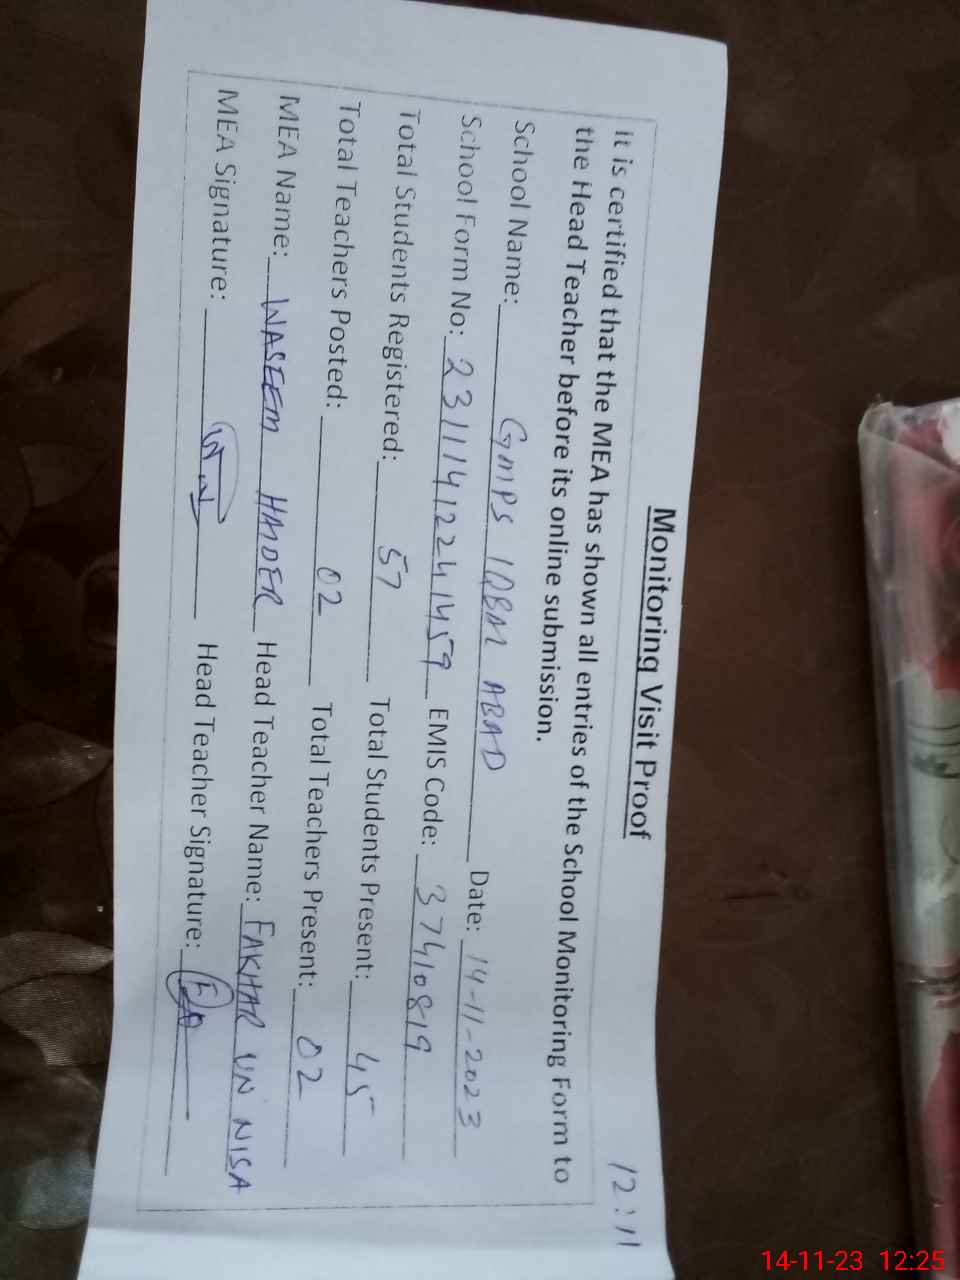 Monitoring Visit Proof
12:11
It is certified that the MEA has shown all entries of the School Monitoring Form to
the Head Teacher before its online submission.
School Name: GMPS IQBAL ABAD Date: 14-11-2023
School Form No: 23111412241459 EMIS Code: 37410819
Total Students Registered: 57 Total Students Present: 45
Total Teachers Posted: 02 Total Teachers Present: 02
MEA Name: WASEEM HAIDER Head Teacher Name: FAKHAR UN NISA
MEA Signature: Head Teacher Signature:
14-11-23 12:25